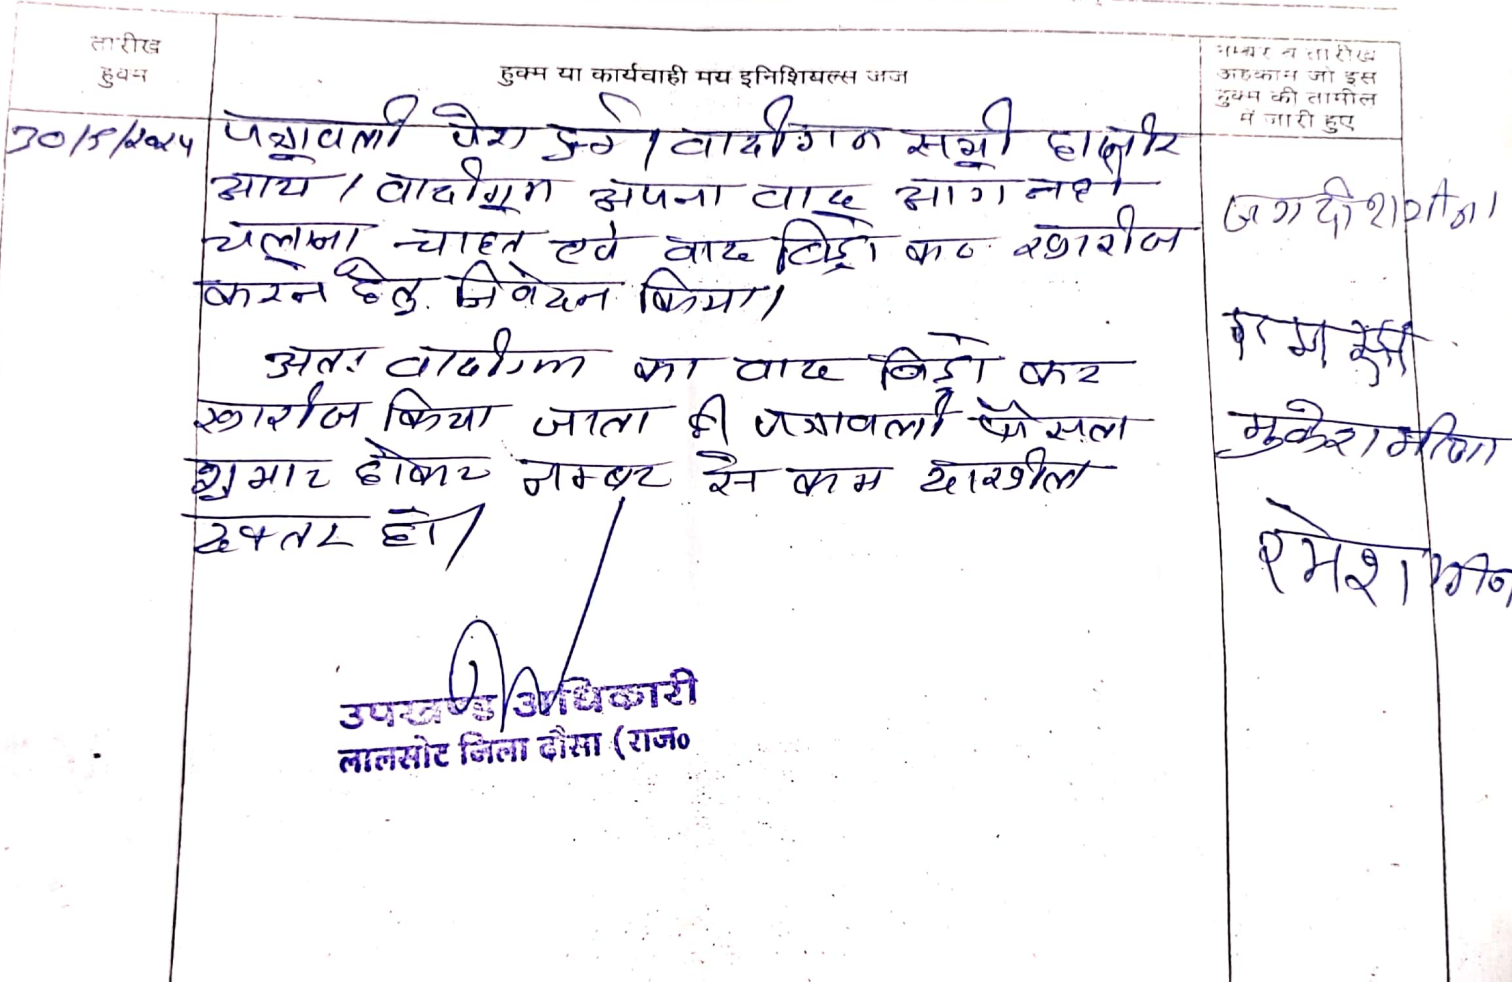 तारीख
हुक्म
हुक्म या कार्यवाही मय इनिशियल्स जज
नम्बर व तारीख
अहकाम जो इस
हुक्म की तामील
में जारी हुए
30/5/2024 पत्रावली पेश हुई। वादीगन सभी हाजीर
आये। वादीगण अपना वाद आगे नही
चलाना चाहते एवं वाद विड्रो कर खारीज
करने हेतु निवेदन किया।
अतः वादीगण का वाद विड्रो कर
खारीज किया जाता है। पत्रावली फैसला
शुमार होकर नम्बर से कम दाखील
दफ्तर हो।
जगदीश मीना
मुकेश मीणा
रमेश मीना
उपखण्ड अधिकारी
लालसोट जिला दौसा (राज०